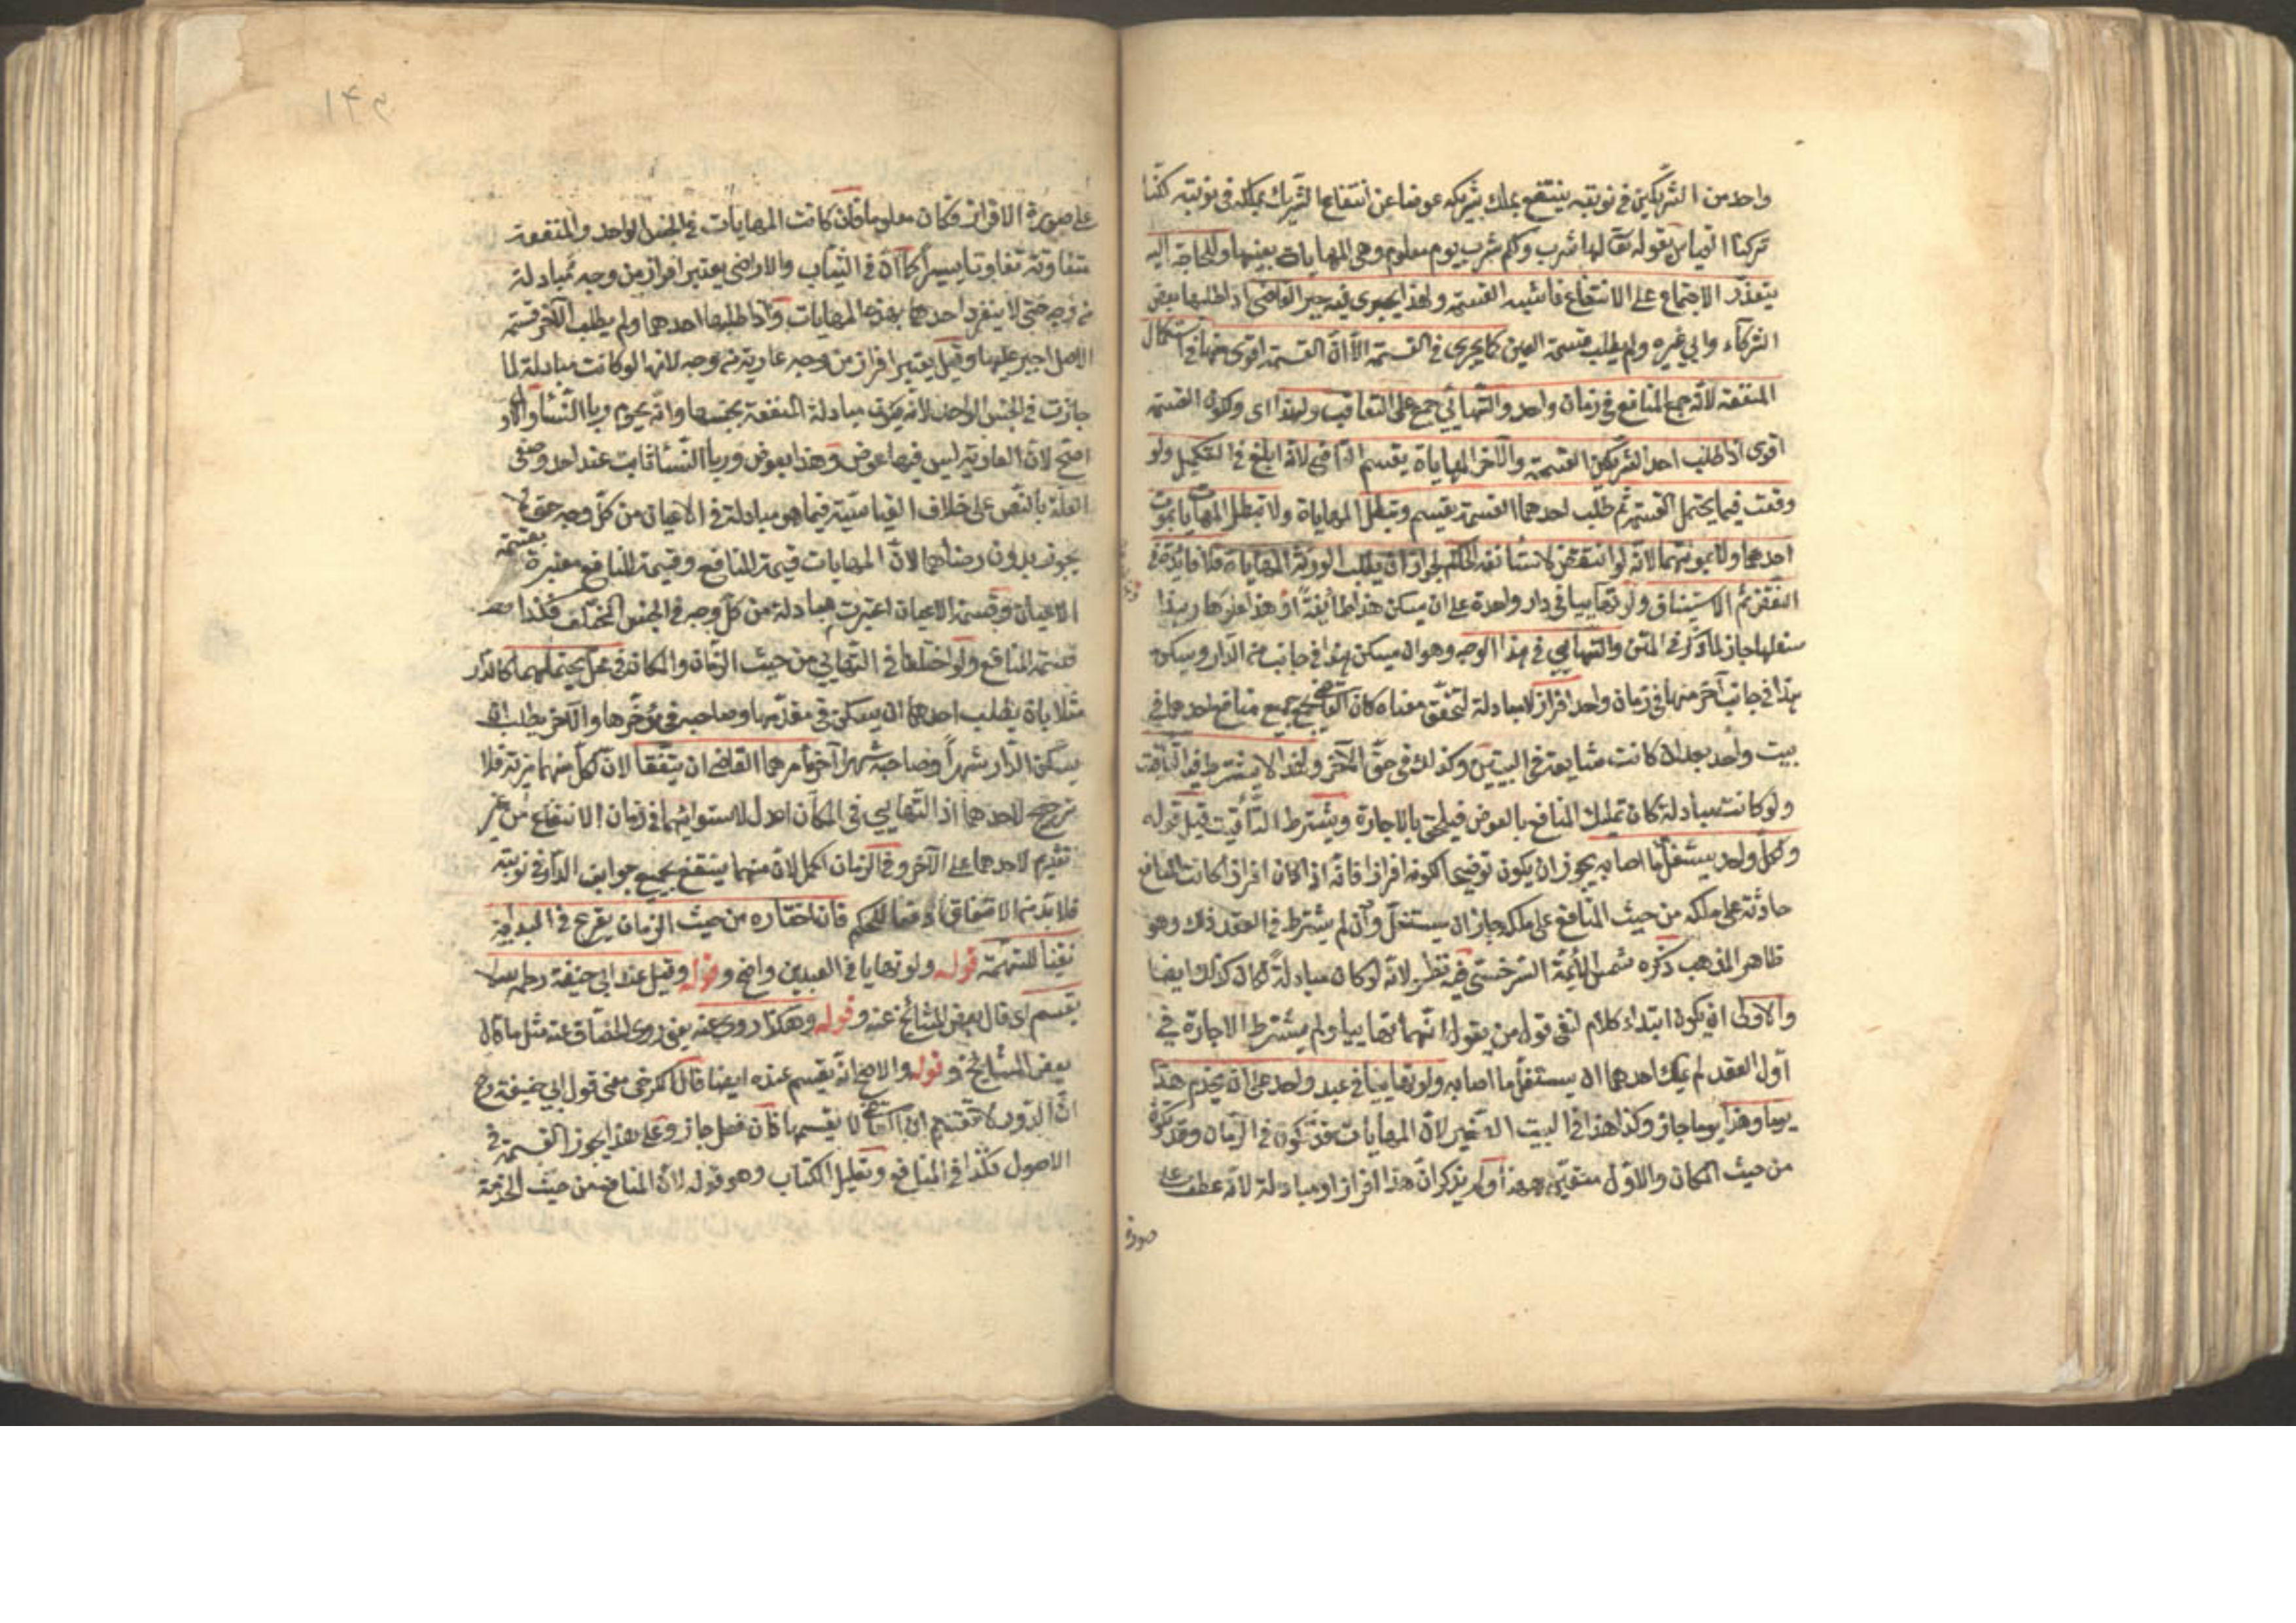 واحد من الشريكين في نوبته ينتفع بملك شريكه عوضا عن انتفاع الشريك بملكه في نوبته لكنا
تركنا القياس بقوله تعالى لها شرب ولكم شرب يوم معلوم وهي المهايات بعينها وللحاجة اليه
يتعذر الاجتماع على الانتفاع فاشبه القسمة ولهذا يجري فيه جبر القاضي اذا طلبها بعض
الشركاء وابى غيره ولم يطلب قسمة العين كما يجري في القسمة الا ان القسمة اقوى منها في استكمال
المنفعة لانه جمع المنافع في زمان واحد والتهائي جمع على التعاقب ولهذا اي ولكون القسمة
اقوى اذا طلب احد الشريكين القسمة والآخر المهاياة يقسم القاضي لانه ابلغ في التكميل ولو
وقعت فيما يحتمل القسمة ثم طلب احدهما القسمة يقسم وتبطل المهاياة ولا تبطل المهايات بموت
احدهما ولا بموتهما لانه لو انتقض لاستأنفه الحاكم لجواز ان يطلب الورثة المهاياة فلا فائدة في
النقض ثم الاستيناف ولو تهاييا في دار واحدة على ان يسكن هذا طائفة وهذا علوها وهذا
سفلها جاز لما ذكر في المتن والتهايي في هذا الوجه وهو ان يسكن هذا في جانب من الدار ويسكن
هذا في جانب آخر منها في زمان واحد افراز لا مبادلة لتحقق معناه كان القاضي جمع جميع منافع احدهما في
بيت واحد بعد ان كانت شايعة في البيتين وكذلك في حق الآخر ولهذا لا يشترط فيه التأقيت
ولو كانت مبادلة كان تمليك المنافع بالعوض فيلحق بالاجارة ويشترط التأقيت قيل قوله
ولكل واحد يستغل ما اصابه يجوز ان يكون توضيحا لكونه افرازا فانه اذا كان افرازا كانت المنافع
حادثة على ملكه من حيث المنافع على ملكه جاز ان يستغل وان لم يشترط في العقد ذلك وهو
ظاهر المذهب ذكره شمس الأئمة السرخسي فيه نظر لانه لو كان مبادلة لكان كذلك ايضا
والاولى ان يكون ابتداء كلام لنفي قول من يقول انهما تهاييا ولم يشترط الاجارة في
اول العقد لم يملك احدهما ان يستغل ما اصابه ولو تهاييا في عبد واحد على ان يخدم هذا
يوما وهذا يوما جاز وكذا هذا في البيت الصغير لان المهايات قد تكون في الزمان وقد تكون
من حيث المكان والاول متعين ههنا ولم يذكر ان هذا افراز او مبادلة لانه عطف على
صورة
على صورة الافراز فكان معلوما فان كانت المهايات في الجنس الواحد والمنفعة
متفاوتة تفاوتا يسيرا كما ان في الثياب والاراضي يعتبر افراز من وجه مبادلة
من وجه حتى لا ينفرد احدهما بهذه المهايات واذا طلبها احدهما ولم يطلب الآخر قسمة
الاصل اجبر عليها وقيل يعتبر افراز من وجه عارية من وجه لانها لو كانت مبادلة لما
جازت في الجنس الواحد لانه يكون مبادلة المنفعة بجنسها وانه يحرم ربا النشأ والاول
اصح لان العارية ليس فيها عوض وهذا بعوض وربا النشأ ثابت عند احد وصفي
العلة بالنص على خلاف القياس فيما هو مبادلة في الاعيان من كل وجه حتى لا
يجوز بدون رضاهما لان المهايات قسمة المنافع وقسمة المنافع معتبرة بقسمة
الاعيان وقسمة الاعيان اعتبرت مبادلة من كل وجه في الجنس المختلف فكذا
قسمة المنافع ولو اختلفا في التهايي من حيث الزمان والمكان في محل يحتملهما كالدار
مثلا بان يطلب احدهما ان يسكن في مقدمها وصاحبه في مؤخرها والآخر يطلب ان
يسكن الدار شهرا وصاحبه شهرا آخر يأمرهما القاضي ان يتفقا لان لكل منهما مزية فلا
ترجيح لاحدهما اذ التهايي في المكان اعدل لاستوائهما في زمان الانتفاع من غير
تقديم لاحدهما على الآخر وفي الزمان اكمل لان منهما ينتفع بجميع جوانب الدار في نوبته
فلا بد من الاتفاق دفعا للتحكم فان اختاره من حيث الزمان يقرع في البداية
نفيا للتهمة قوله ولو تهايا في العبدين واضح وقوله وقيل عند ابي حنيفة رحمه الله لا
يقسم اي قال بعض المشائخ عنه وقوله وهكذا روي عنه يعني روى الخصاف عنه مثل ما قال
بعض المشايخ وقوله والاصح انه يقسم عنده ايضا قال الكرخي معنى قول ابي حنيفة رح
ان الدور لا تقسم ان القاضي لا يقسمها فان فعل جاز وعلى هذا يجوز القسمة في
الاصول فكذا في المنافع وتعليل الكتاب وهو قوله لان المنافع من حيث الخدمة